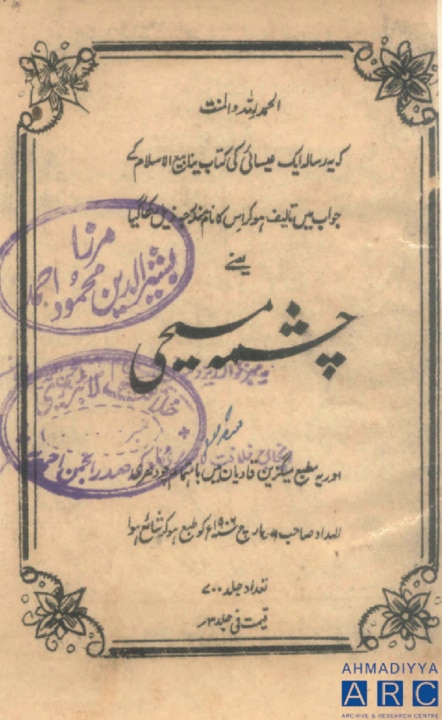 الحمد للہ والمنت
کہ یہ رسالہ ایک عیسائی کی کتاب ینابیع الاسلام کے
جواب میں تالیف ہو کر اس کا نام مندرجہ ذیل رکھا گیا
یعنے
چشمہ مسیحی
اور یہ مطبع میگزین قادیان میں باہتمام چودھری
الہداد صاحب ۹ مارچ ۱۹۰۶ء کو طبع ہو کر شائع ہوا
تعداد جلد ۷۰۰
قیمت فی جلد ۳ر
مرزا
بشیر الدین محمود احمد
خلافت لائبریری
صدر انجمن احمدیہ
AHMADIYYA
ARC
ARCHIVE & RESEARCH CENTRE